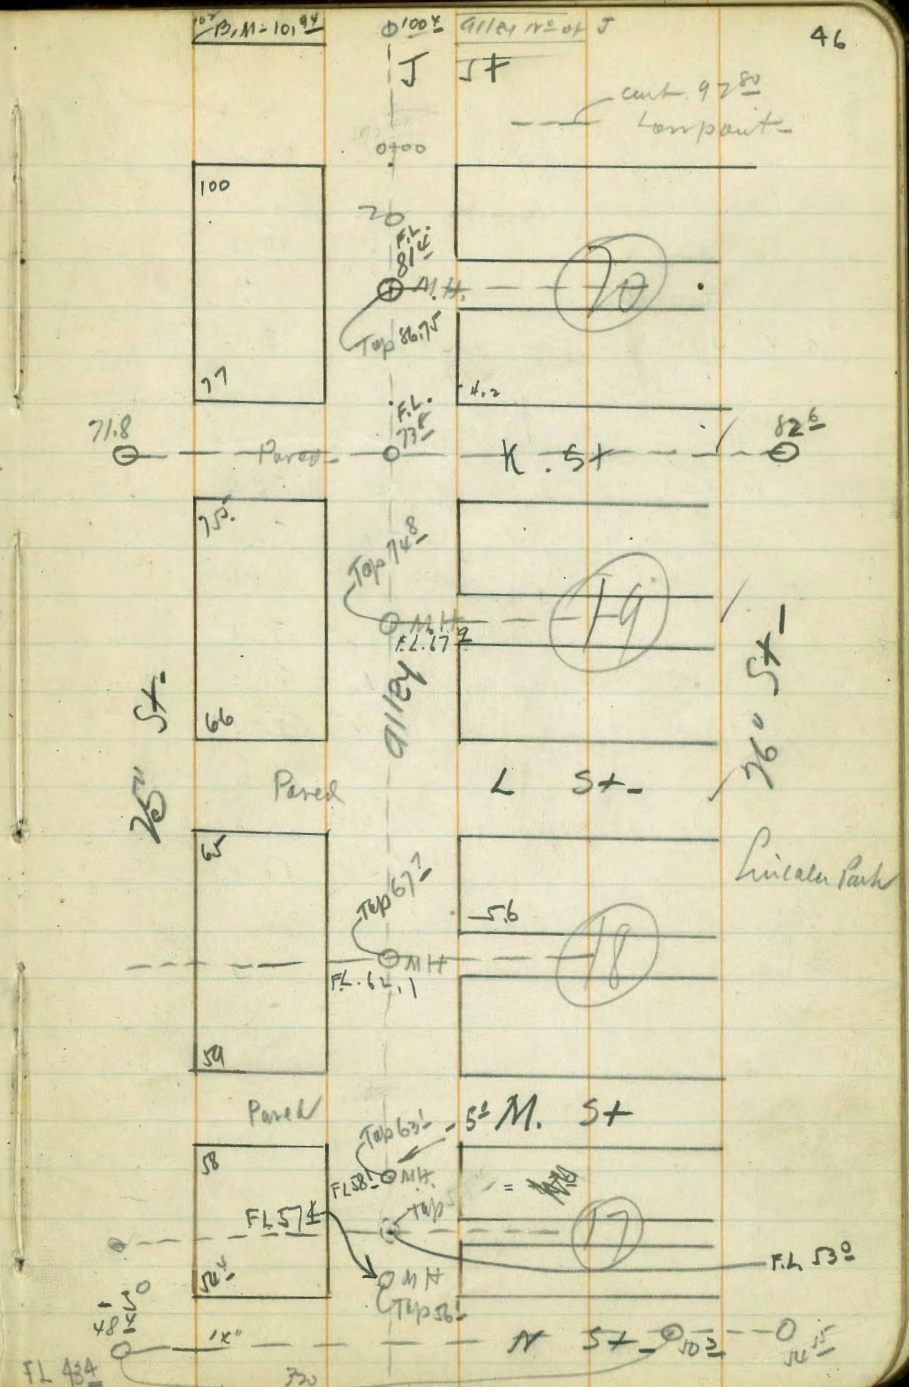 46
B.M = 101.94
100 4
Alley No of J
J ST
cent. 97 80
Low point
0+00
100
20
F.L.
81 4
M.H.
70
Top 86.75
77
F.L.
73 8
4.2
71.8
Paved
K. St
82 6
75 5
Top 74 8
M.H.
F.L. 67 9
19
Alley
25" St.
66
26" St
Paved
L St
65
Lincoln Park
Top 67 7
5.6
MH
F.L. 62.1
18
59
Paved
5 0 M. St
Top 63 1
58
FL 58 1
MH.
=
Top
FL 57 4
17
F.L. 53 0
54 4
MH
Top 56 1
48 4
N St
50 2
54 55
FL 43 4
320